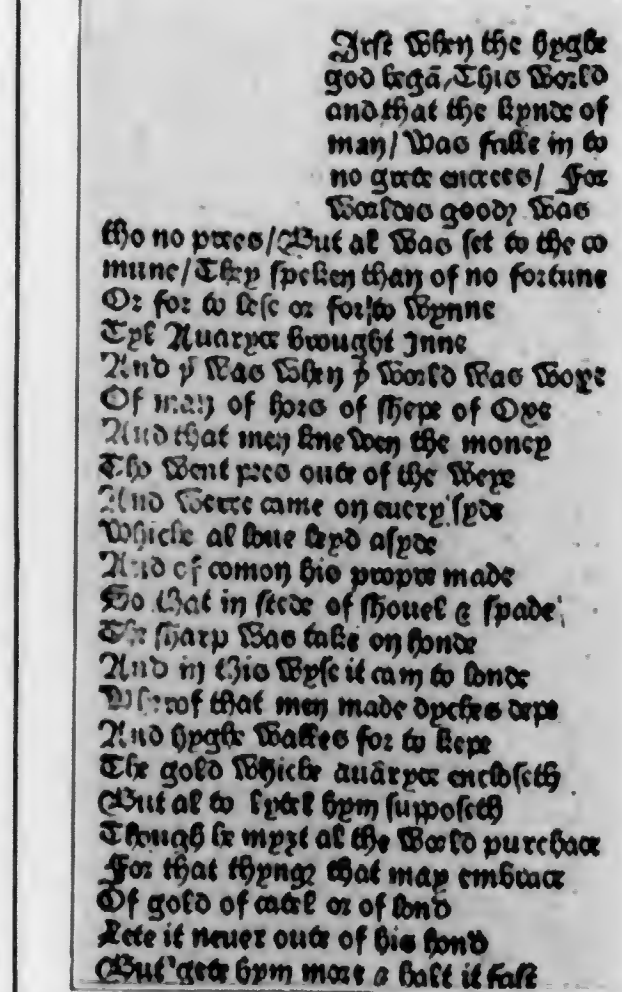 Irst when the hyghe
god begā/This world
and that the kynde of
man/ was falle in to
no grete encrees/ For
worldes good was
tho no prees/But al was set to the co
mune/They speken than of no fortune
Or for to lese or for to wynne
Tyl Auaryce brought Inne
And þͭ was when þͤ world was woxe
Of man of hors of shepe of Oxe
And that men knewen the money
Tho went pees oute of the weye
And werre came on euery syde
Whiche al loue leyd asyde
And of comon his propre made
So that in stede of shouel & spade
The sharp was take on honde
And in this wyse it cam to londe
Wherof that men made dyches depe
And hyghe walles for to kepe
The gold whiche auāryce encloseth
But al to lytel hym supposeth
Though he myzt al the world purchace
For that thyng that may embrace
Of gold of catel or of lond
Lete it neuer oute of his hond
But gete hym more & halt it fast